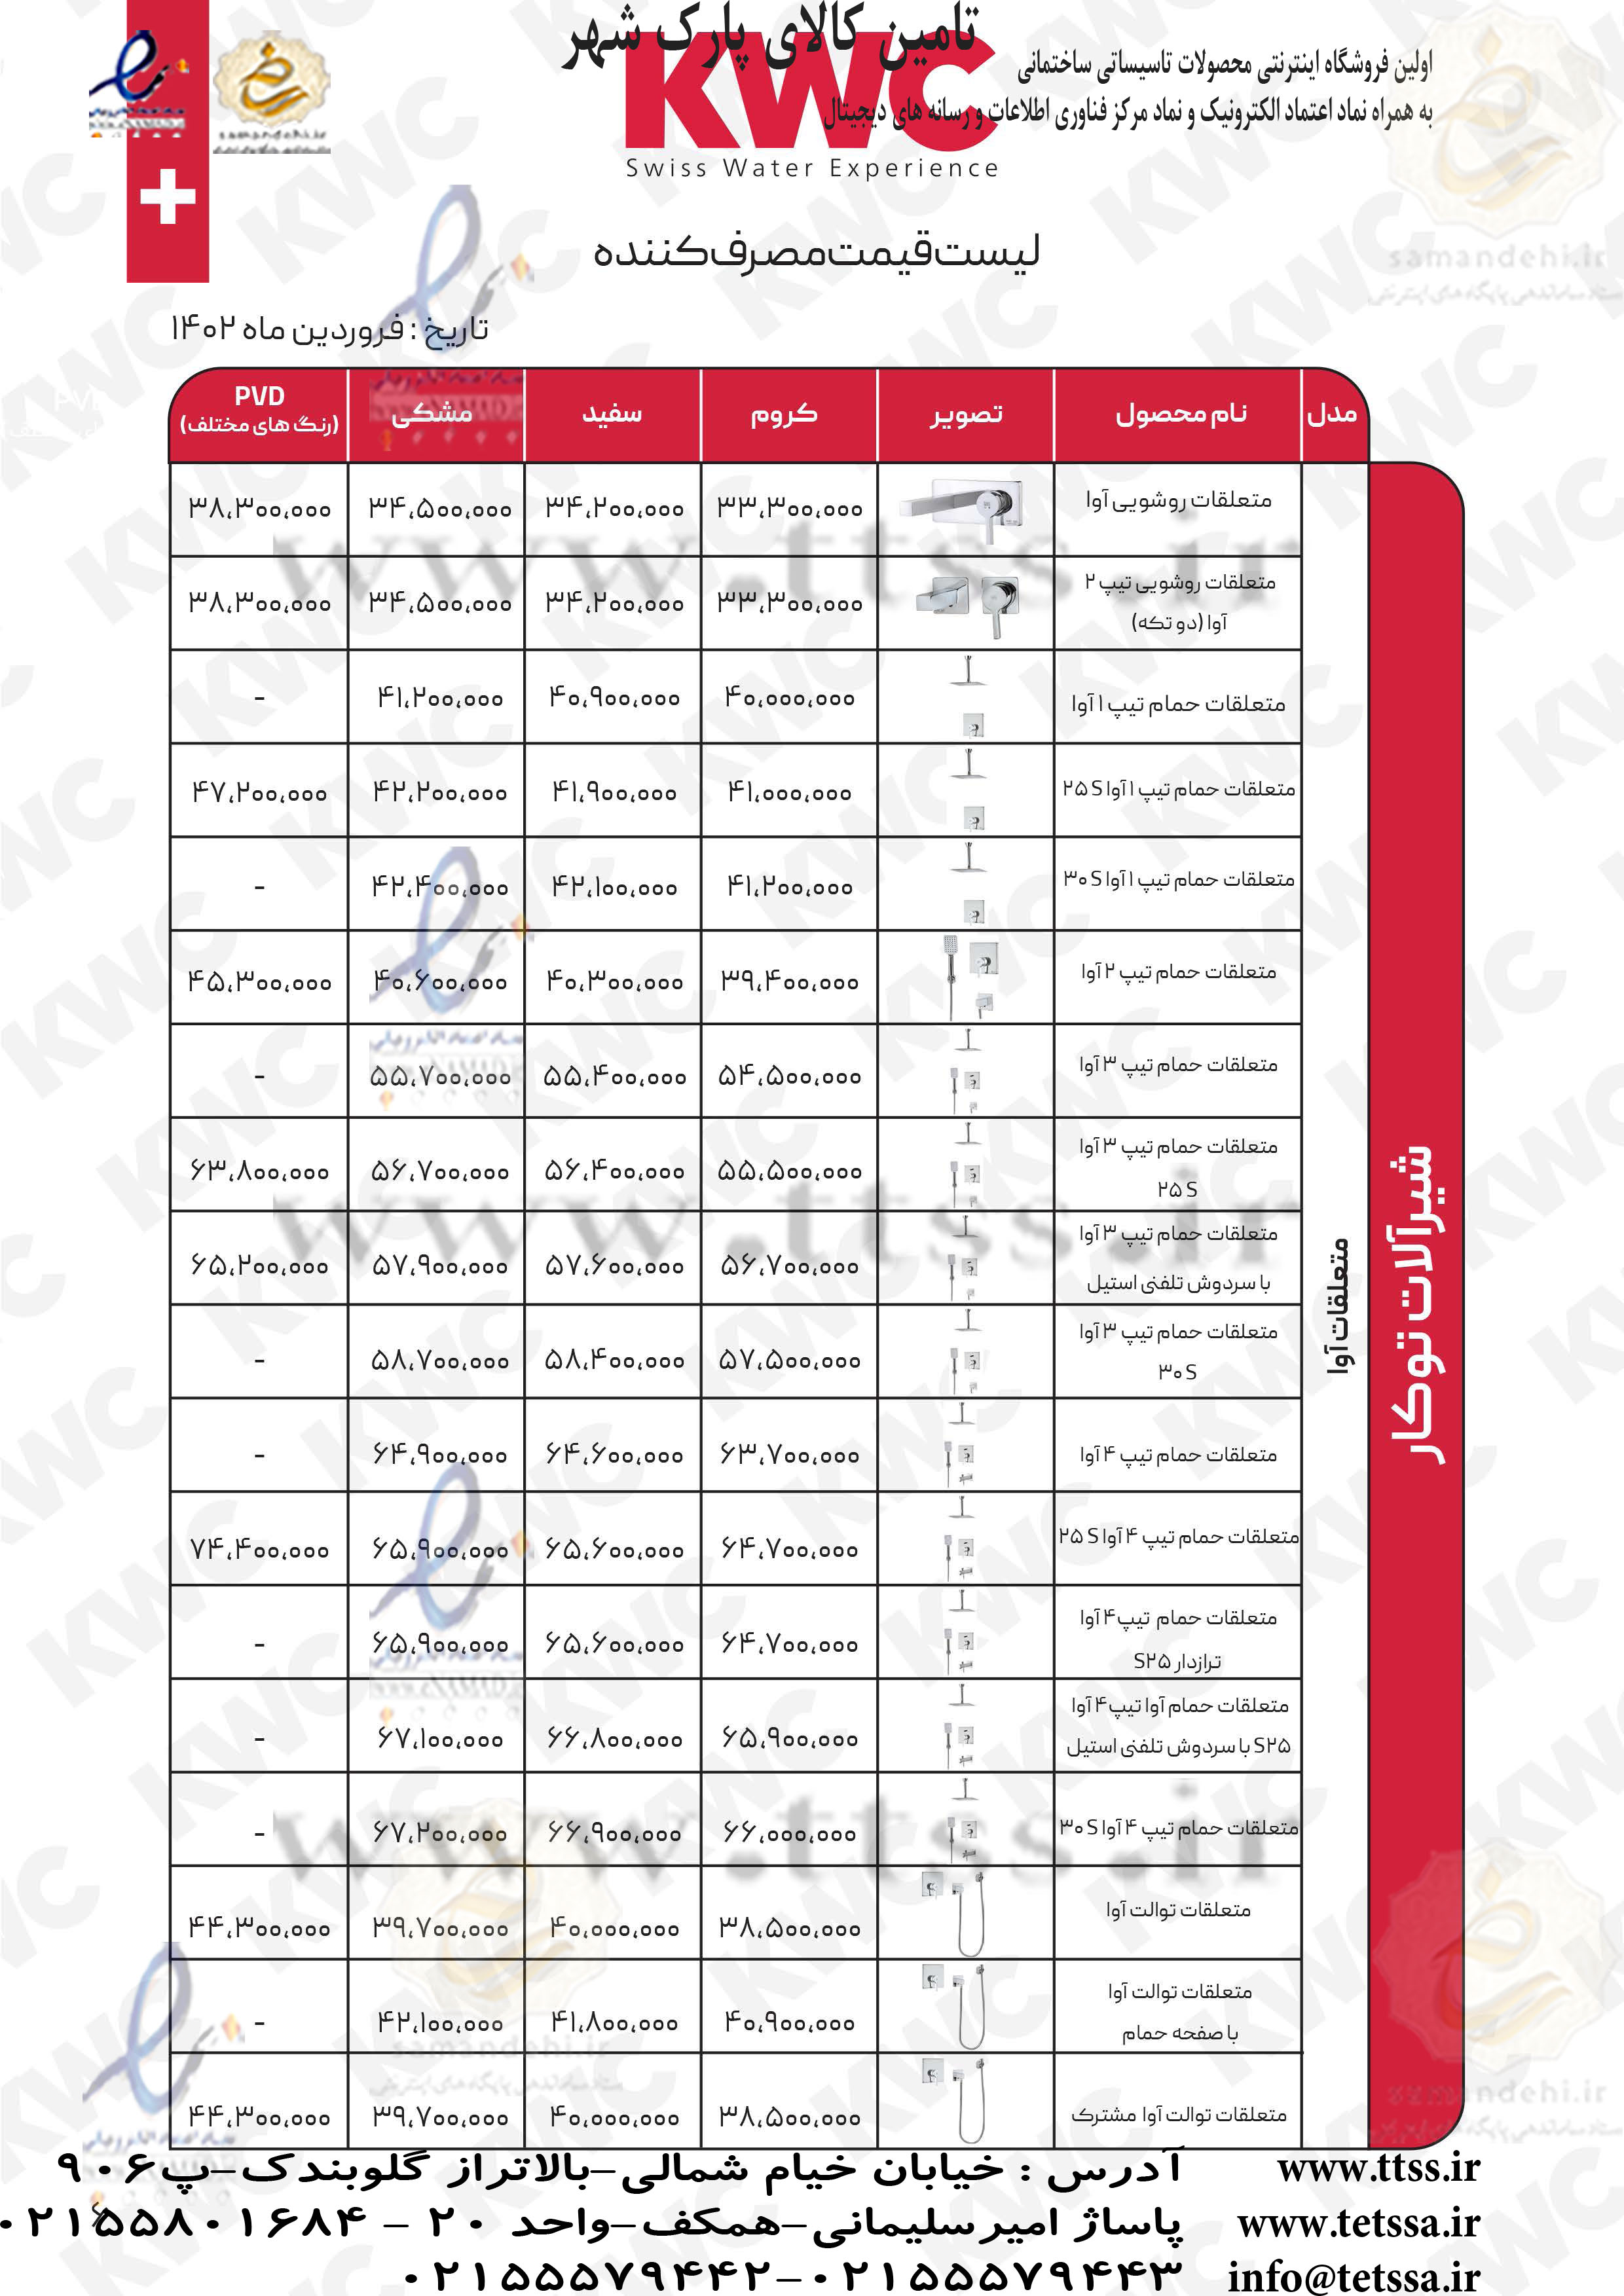 تامین کالای پارک شهر
KWC
Swiss Water Experience
اولین فروشگاه اینترنتی محصولات تاسیساتی ساختمانی
به همراه نماد اعتماد الکترونیک و نماد مرکز فناوری اطلاعات و رسانه های دیجیتال
samandehi.ir
لیست قیمت مصرف کننده
تاریخ : فروردین ماه ۱۴۰۲
مدل نام محصول تصویر کروم سفید مشکی PVD (رنگ های مختلف)
شیرآلات توکار
متعلقات آوا
متعلقات روشویی آوا ۳۳،۳۰۰،۰۰۰ ۳۴،۲۰۰،۰۰۰ ۳۴،۵۰۰،۰۰۰ ۳۸،۳۰۰،۰۰۰
متعلقات روشویی تیپ ۲
آوا (دو تکه) ۳۳،۳۰۰،۰۰۰ ۳۴،۲۰۰،۰۰۰ ۳۴،۵۰۰،۰۰۰ ۳۸،۳۰۰،۰۰۰
متعلقات حمام تیپ ۱ آوا ۴۰،۰۰۰،۰۰۰ ۴۰،۹۰۰،۰۰۰ ۴۱،۲۰۰،۰۰۰ -
متعلقات حمام تیپ ۱ آوا ۲۵ S ۴۱،۰۰۰،۰۰۰ ۴۱،۹۰۰،۰۰۰ ۴۲،۲۰۰،۰۰۰ ۴۷،۲۰۰،۰۰۰
متعلقات حمام تیپ ۱ آوا ۳۰ S ۴۱،۲۰۰،۰۰۰ ۴۲،۱۰۰،۰۰۰ ۴۲،۴۰۰،۰۰۰ -
متعلقات حمام تیپ ۲ آوا ۳۹،۴۰۰،۰۰۰ ۴۰،۳۰۰،۰۰۰ ۴۰،۶۰۰،۰۰۰ ۴۵،۳۰۰،۰۰۰
متعلقات حمام تیپ ۳ آوا ۵۴،۵۰۰،۰۰۰ ۵۵،۴۰۰،۰۰۰ ۵۵،۷۰۰،۰۰۰ -
متعلقات حمام تیپ ۳ آوا
۲۵ S ۵۵،۵۰۰،۰۰۰ ۵۶،۴۰۰،۰۰۰ ۵۶،۷۰۰،۰۰۰ ۶۳،۸۰۰،۰۰۰
متعلقات حمام تیپ ۳ آوا
با سردوش تلفنی استیل ۵۶،۷۰۰،۰۰۰ ۵۷،۶۰۰،۰۰۰ ۵۷،۹۰۰،۰۰۰ ۶۵،۲۰۰،۰۰۰
متعلقات حمام تیپ ۳ آوا
۳۰ S ۵۷،۵۰۰،۰۰۰ ۵۸،۴۰۰،۰۰۰ ۵۸،۷۰۰،۰۰۰ -
متعلقات حمام تیپ ۴ آوا ۶۳،۷۰۰،۰۰۰ ۶۴،۶۰۰،۰۰۰ ۶۴،۹۰۰،۰۰۰ -
متعلقات حمام تیپ ۴ آوا ۲۵ S ۶۴،۷۰۰،۰۰۰ ۶۵،۶۰۰،۰۰۰ ۶۵،۹۰۰،۰۰۰ ۷۴،۴۰۰،۰۰۰
متعلقات حمام تیپ۴ آوا
ترازدار S۲۵ ۶۴،۷۰۰،۰۰۰ ۶۵،۶۰۰،۰۰۰ ۶۵،۹۰۰،۰۰۰ -
متعلقات حمام آوا تیپ۴ آوا
S۲۵ با سردوش تلفنی استیل ۶۵،۹۰۰،۰۰۰ ۶۶،۸۰۰،۰۰۰ ۶۷،۱۰۰،۰۰۰ -
متعلقات حمام تیپ ۴ آوا ۳۰ S ۶۶،۰۰۰،۰۰۰ ۶۶،۹۰۰،۰۰۰ ۶۷،۲۰۰،۰۰۰ -
متعلقات توالت آوا ۳۸،۵۰۰،۰۰۰ ۴۰،۰۰۰،۰۰۰ ۳۹،۷۰۰،۰۰۰ ۴۴،۳۰۰،۰۰۰
متعلقات توالت آوا
با صفحه حمام ۴۰،۹۰۰،۰۰۰ ۴۱،۸۰۰،۰۰۰ ۴۲،۱۰۰،۰۰۰ -
متعلقات توالت آوا مشترک ۳۸،۵۰۰،۰۰۰ ۴۰،۰۰۰،۰۰۰ ۳۹،۷۰۰،۰۰۰ ۴۴،۳۰۰،۰۰۰
www.ttss.ir
آدرس : خیابان خیام شمالی-بالاتراز گلوبندک-پ۹۰۶
www.tetssa.ir
پاساژ امیرسلیمانی-همکف-واحد ۲۰ - ۰۲۱۵۵۸۰۱۶۸۴
info@tetssa.ir
۰۲۱۵۵۵۷۹۴۴۲-۰۲۱۵۵۵۷۹۴۴۳